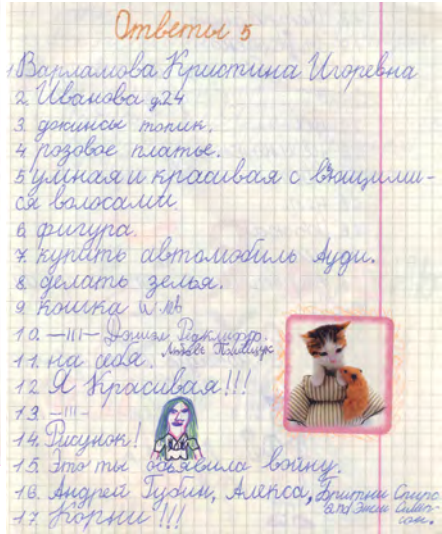 Ответы 5
1 Варламова Кристина Игоревна
2. Иванова д24
3. джинсы топик.
4. розовое платье.
5 умная и красивая с вющими-
ся волосами.
6. фигура.
7. купить автомобиль Ауди.
8. делать зелья.
9. кошка
10. —///— Дэниэл Рэдклифф.
11. на себя. Любовь Полищук
12. Я Красивая!!!
13. —///—
14. Рисунок!
15. Это ты объявила войну.
16. Андрей Губин, Алекса, Бритни Спирс
and Эшли Симп-
сон.
17. Корни !!!